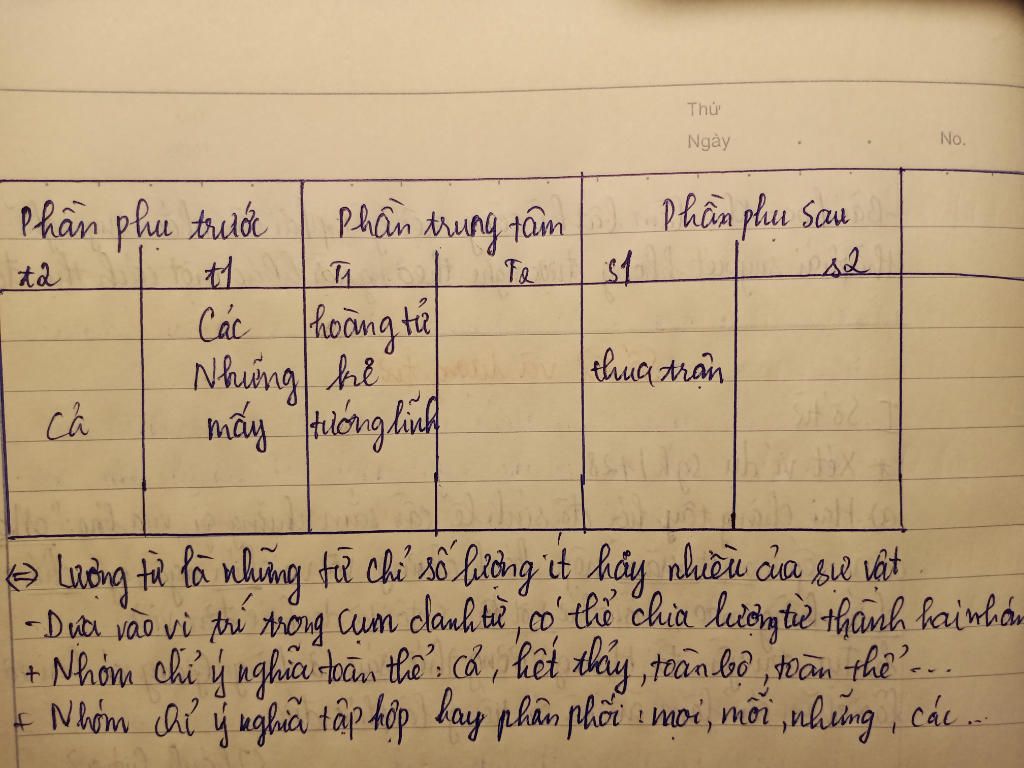 Thứ
Ngày . . No.
Phần phụ trước Phần trung tâm Phần phụ sau
t2 t1 T1 T2 s1 s2
Các hoàng tử
Những kẻ thua trận
Cả mấy tướng lĩnh
<=> Lượng từ là những từ chỉ số lượng ít hay nhiều của sự vật
- Dựa vào vị trí trong cụm danh từ, có thể chia lượng từ thành hai nhóm
+ Nhóm chỉ ý nghĩa toàn thể: cả, hết thảy, toàn bộ, toàn thể...
+ Nhóm chỉ ý nghĩa tập hợp hay phân phối: mọi, mỗi, những, các...